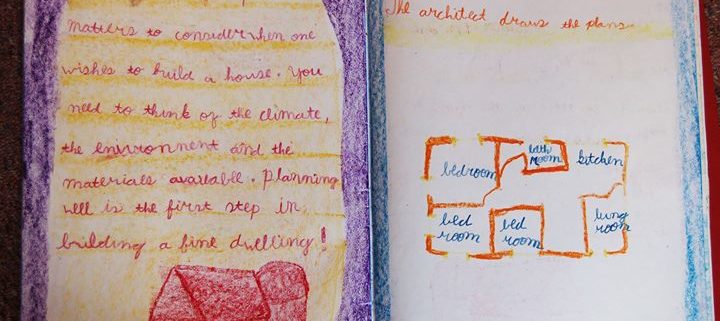 matters to consider when one
wishes to build a house. You
need to think of the climate,
the environment and the
materials available. Planning
well is the first step in
building a fine dwelling!
The architect draws the plans
bedroom
bath
room
kitchen
bed
room
bed
room
living
room